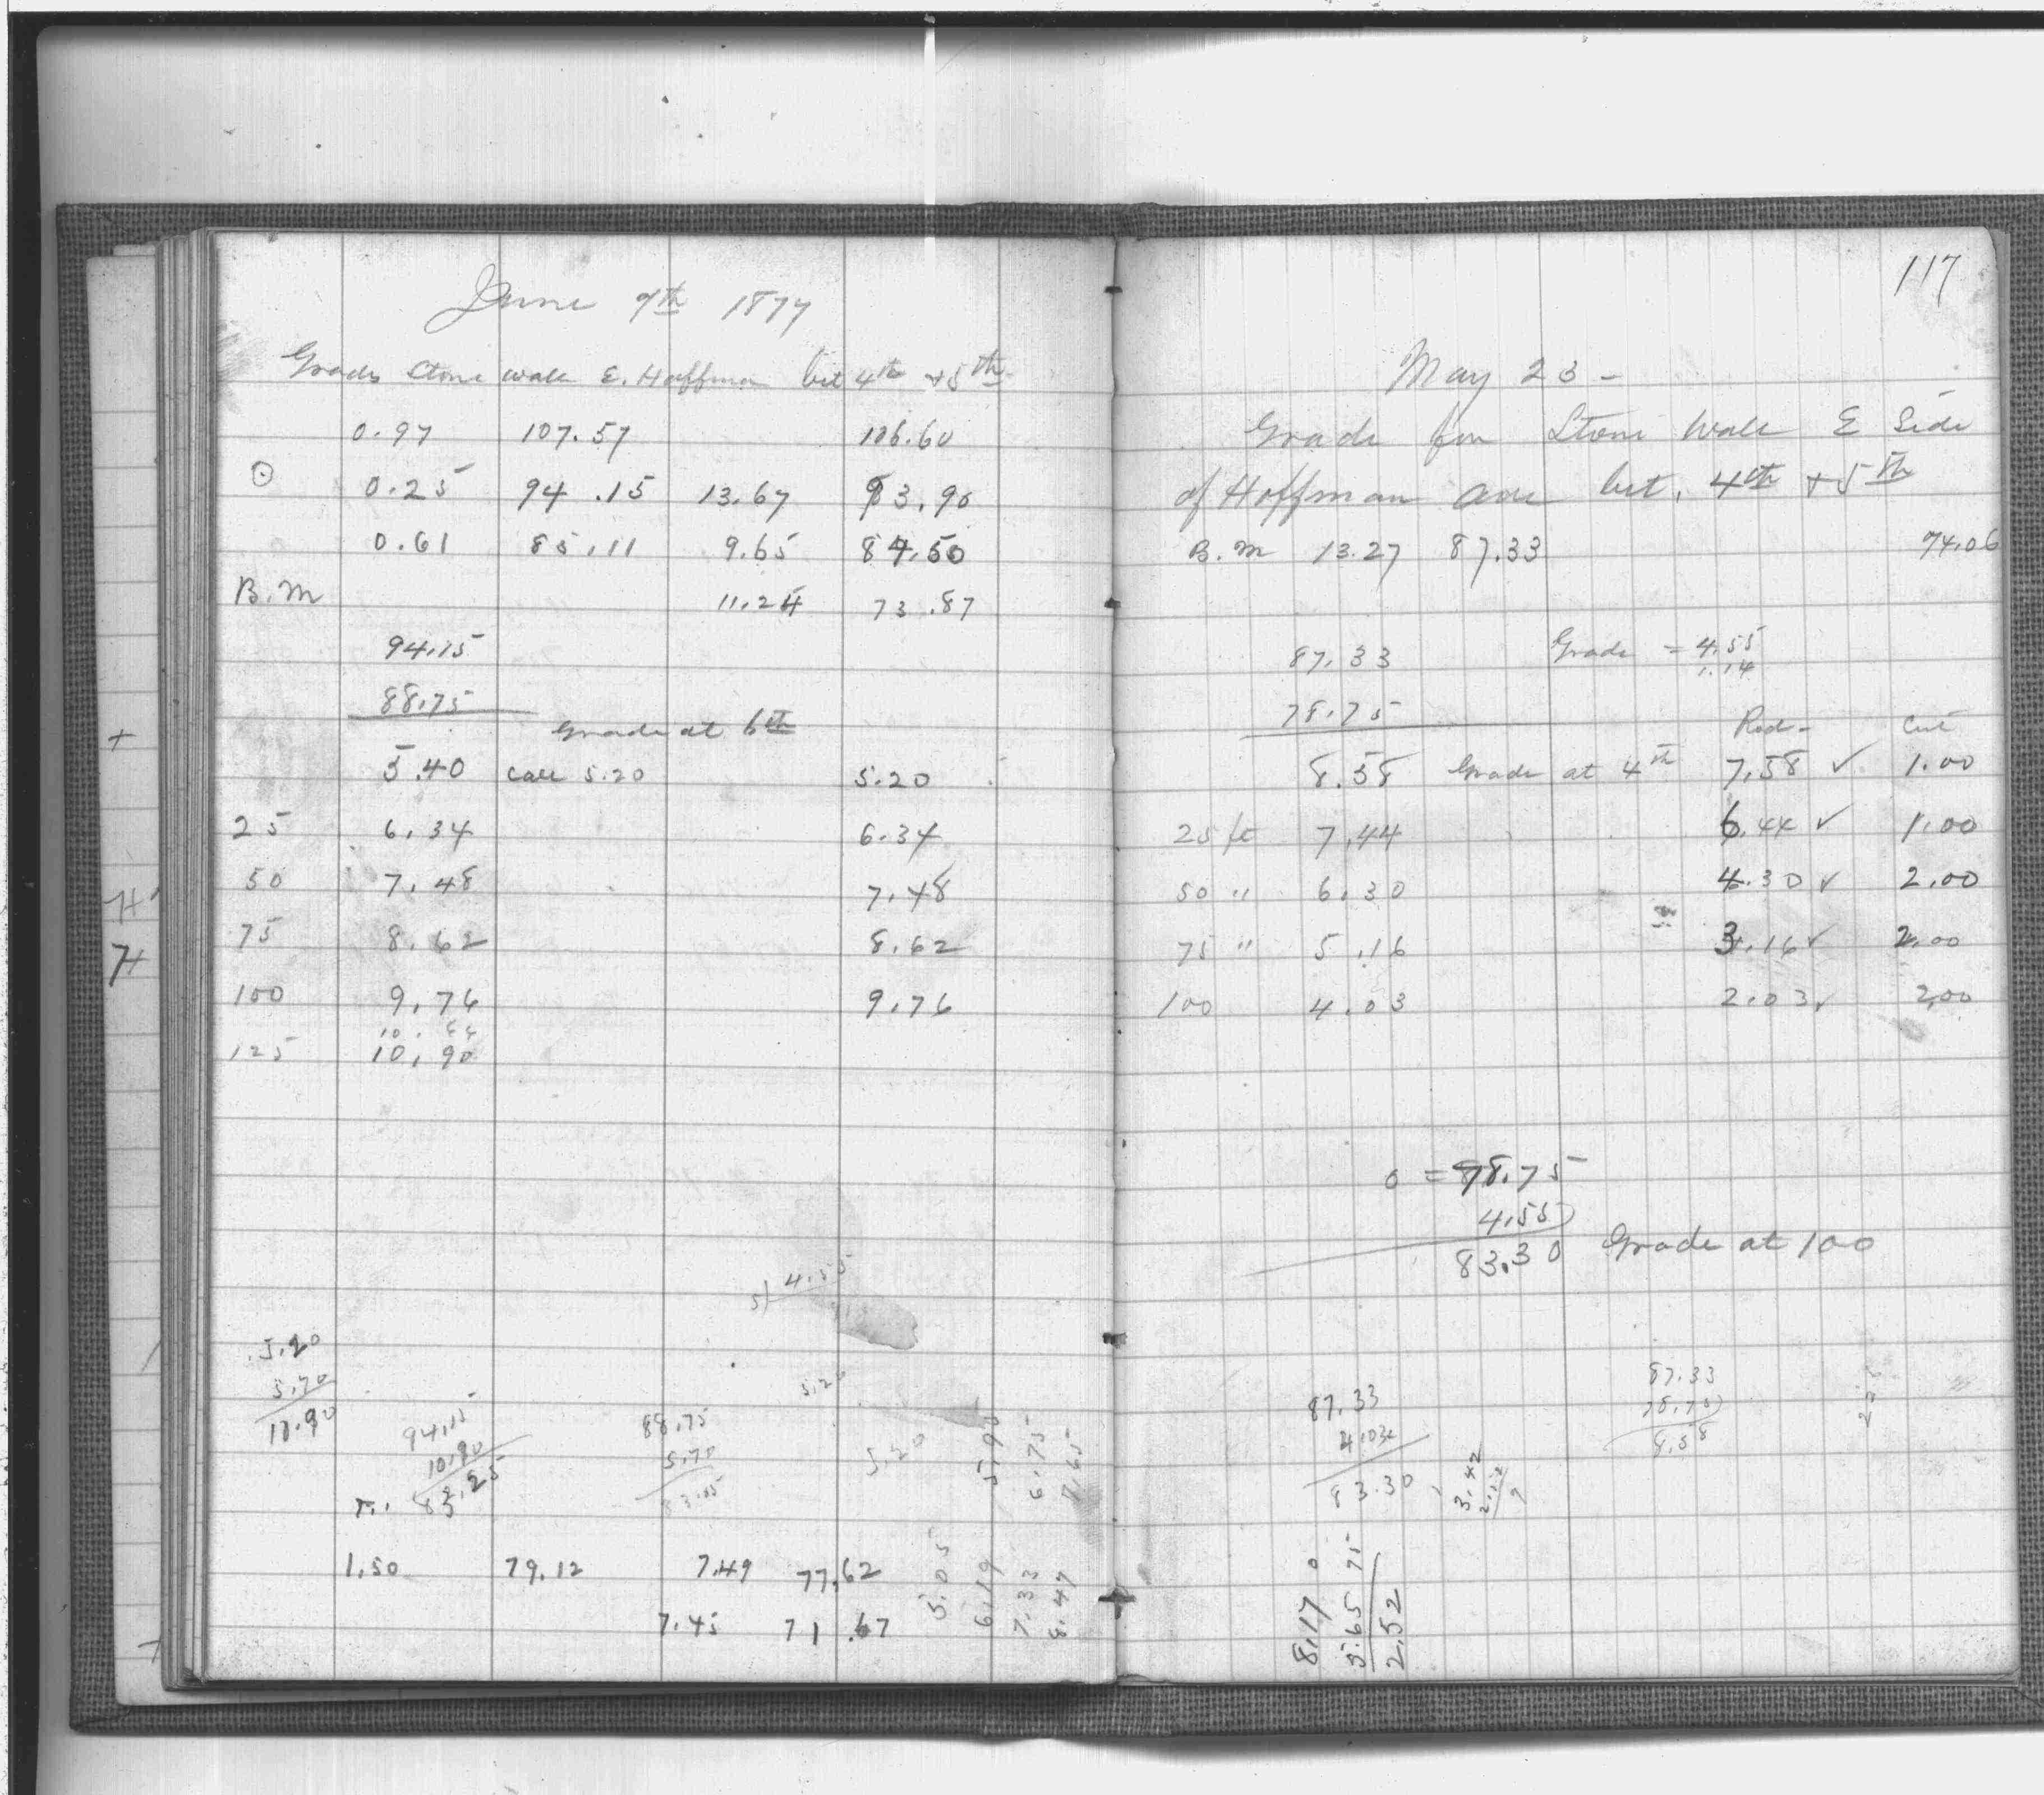 June 7th 1877
Grades Stone wall E. Hoffman bet 4th + 5th
0.97 107.57 106.60
⊙ 0.25 94.15 13.67 93.90
0.61 85.11 9.65 84.50
B.M 11.24 73.87
94.15
88.75
Grade at 5th
5.40 call 5.20 5.20
25 6.34 6.34
50 7.48 7.48
75 8.62 8.62
100 9.76 9.76
125 10.90
5) 4.55
5.20
5.70
10.90
94.15
10.90
83.25
88.75
5.70
83.05
5.20
5.20
5.90
6.75
7.65
1.50 79.12 7.49 77.62
7.45 71.67
5.05
6.19
7.33
8.47
117
May 23 -
Grade for Stone Wall E Side
of Hoffman ave bet. 4th + 5th
B.M 13.27 87.33 74.06
87.33 Grade = 4.55
1.14
78.75 Rod - Cut
8.58 Grade at 4th 7.58 ✓ 1.00
25 ft 7.44 6.44 ✓ 1.00
50 " 6.30 4.30 ✓ 2.00
75 " 5.16 3.16 ✓ 2.00
100 4.03 2.03 ✓ 2.00
0 = 78.75
4.55
83.30 Grade at 100
87.33
4.03
83.30
3.42
87.33
78.75
8.58
8.17 0
5.65 75
2.52